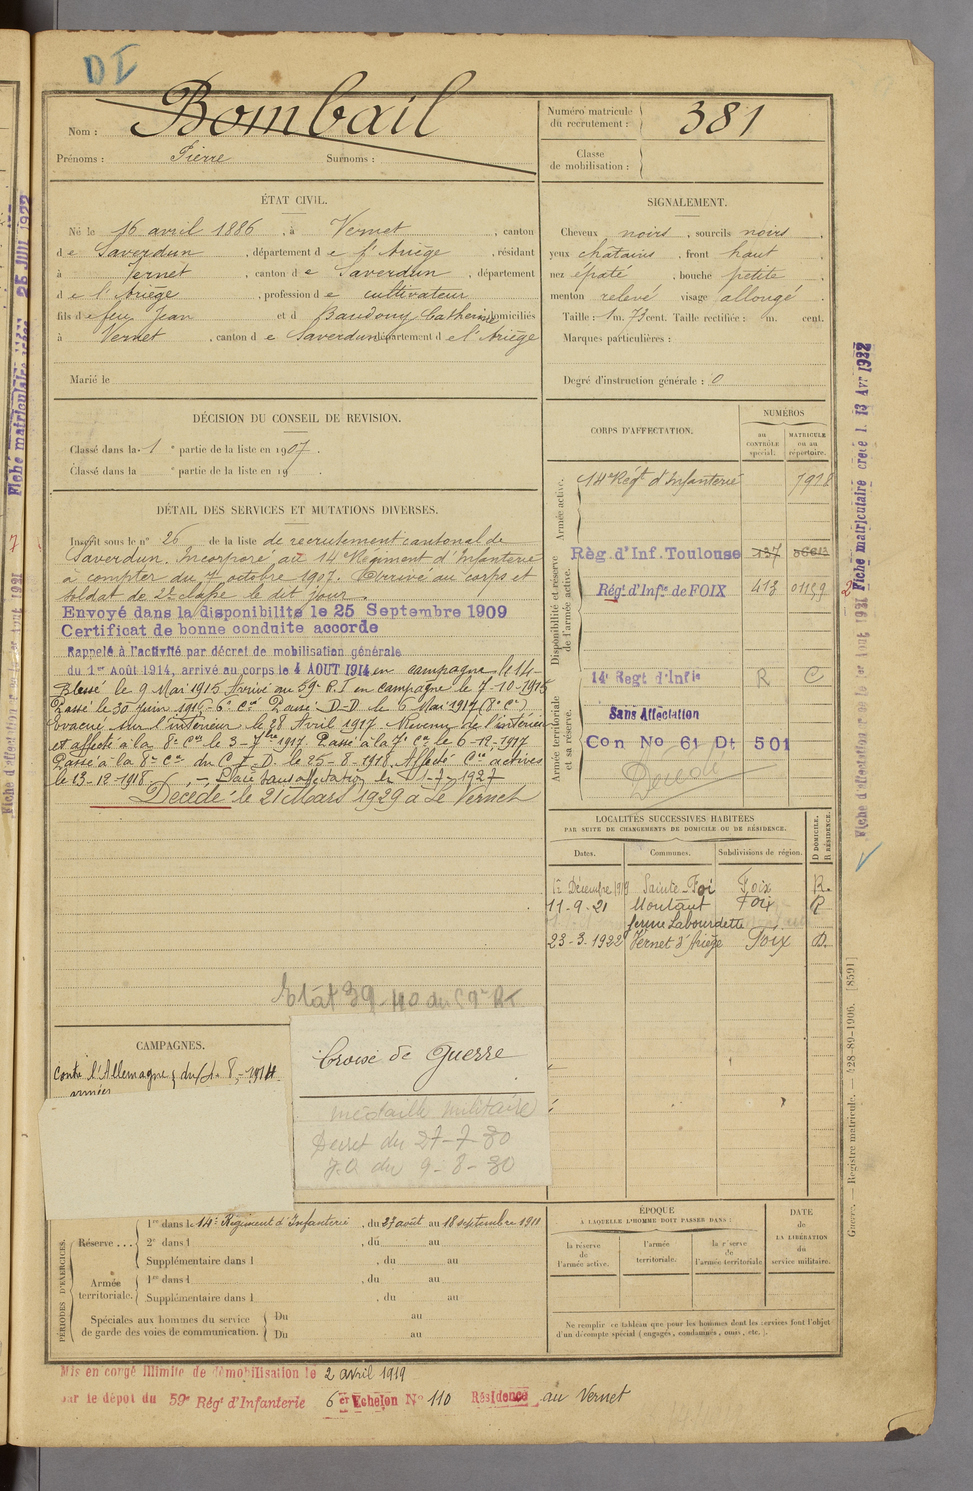 DI
Nom : Bombail
Prénoms : Pierre Surnoms :
Numéro matricule du recrutement : 381
Classe de mobilisation :
ÉTAT CIVIL.
Né le 16 avril 1886, à Vernet, canton
de Saverdun, département de l'Ariège, résidant
à Vernet, canton de Saverdun, département
de l'Ariège, profession de cultivateur
fils de feu Jean et d Baudouy Catherine domiciliés
à Vernet, canton de Saverdun département de l'Ariège
Marié le
SIGNALEMENT.
Cheveux noirs, sourcils noirs
yeux châtains, front haut
nez épaté, bouche petite
menton relevé visage allongé.
Taille : 1 m. 73 cent. Taille rectifiée : m. cent.
Marques particulières :
Degré d'instruction générale : 0
DÉCISION DU CONSEIL DE REVISION.
Classé dans la 1e partie de la liste en 1907.
Classé dans la e partie de la liste en 19 .
DÉTAIL DES SERVICES ET MUTATIONS DIVERSES.
Inscrit sous le n° 26 de la liste de recrutement cantonal de
Saverdun. Incorporé au 14e Régiment d'Infanterie
à compter du 7 octobre 1907. Arrivé au corps et
soldat de 2e classe le dit jour.
Envoyé dans la disponibilité le 25 Septembre 1909
Certificat de bonne conduite accordé
Rappelé à l'activité par décret de mobilisation générale
du 1er Août 1914, arrivé au corps le 4 AOUT 1914 en campagne le 14-
Blessé le 9 Mai 1915 Arrivé au 59e R.I en campagne le 7-10-1915
Passé le 30 Juin 1916 - 6e Cie Passé D.D. le 6 Mai 1917 (8e Cie)
Evacué sur l'intérieur le 28 Avril 1917. Revenu de l'intérieur
et affecté à la 8e Cie le 3-7bre 1917. Passé à la 7e Cie le 6-12-1917
Passé à la 8e Cie du C.I.D. le 25-8-1918. Affecté Cie actives
le 13-12-1918. Placé sans affectation le 1-7-1927
Décédé le 21 Mars 1929 à Le Vernet
CORPS D'AFFECTATION.
NUMÉROS
au CONTRÔLE spécial.
MATRICULE ou au répertoire.
Armée active.
14e Régt d'Infanterie 7918
Disponibilité et réserve de l'armée active.
Règ. d'Inf. Toulouse 137
Régt. d'Infie de FOIX 413 01159
Armée territoriale et sa réserve.
14e Regt d'Infie R C
Sans Affectation
Con No 61 Dt 501
Décédé
LOCALITÉS SUCCESSIVES HABITÉES
PAR SUITE DE CHANGEMENTS DE DOMICILE OU DE RÉSIDENCE.
D DOMICILE. R RÉSIDENCE.
Dates. Communes. Subdivisions de région.
1er Décembre 1913 Sainte-Foi Foix R.
11-9-21 Montaut Foix R
ferme Labourdette
23-3-1922 Vernet d'Ariège Foix D.
Etat 39-40 du 59e RI
CAMPAGNES.
Contre l'Allemagne, du 4-8-1914
armées
Croix de Guerre
médaille militaire
Decret du 27-7-30
J.O du 9-8-30
PÉRIODES D'EXERCICES.
Réserve ...
1re dans le 14e Régiment d'Infanterie, du 27 août au 18 septembre 1911
2e dans l , du au
Supplémentaire dans l , du au
Armée territoriale.
1re dans l , du au
Supplémentaire dans l , du au
Spéciales aux hommes du service de garde des voies de communication.
Du au
Du au
ÉPOQUE
À LAQUELLE L'HOMME DOIT PASSER DANS :
la réserve de l'armée active.
l'armée territoriale.
la réserve de l'armée territoriale
DATE de LA LIBÉRATION du service militaire.
Ne remplir ce tableau que pour les hommes dont les services font l'objet
d'un décompte spécial (engagés, condamnés, omis, etc.).
Mis en congé illimité de démobilisation le 2 avril 1919
par le dépôt du 59e Règt d'Infanterie 6er Echelon N° 110 Résidence au Vernet
Fiche matriculaire créée le 13 Avr 1932
Guerre. — Registre matricule. — 428-89-1906. [8591]